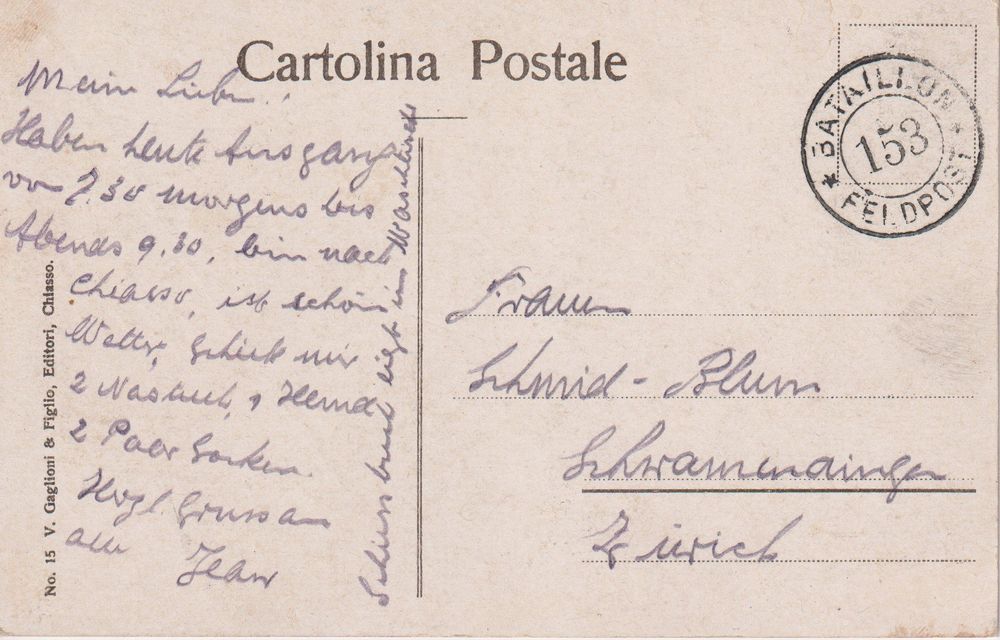 Cartolina Postale
Meine Lieben!
Haben heute Ausgang
von 7.30 morgens bis
Abends 9.30, bin nach
Chiasso, ist schön
Wetter, Schick mir
2 Nastuch, 1 Hemd
2 Paar Socken.
Hrzl. Gruss an
alle Jean
Schiessbuch liegt im Waschtisch
No. 15 V. Gaglioni & Figlio, Editori, Chiasso.
★ BATAILLON ★
153
FELDPOST
Frauen
Schmid - Blum
Schwamendingen
Zürich